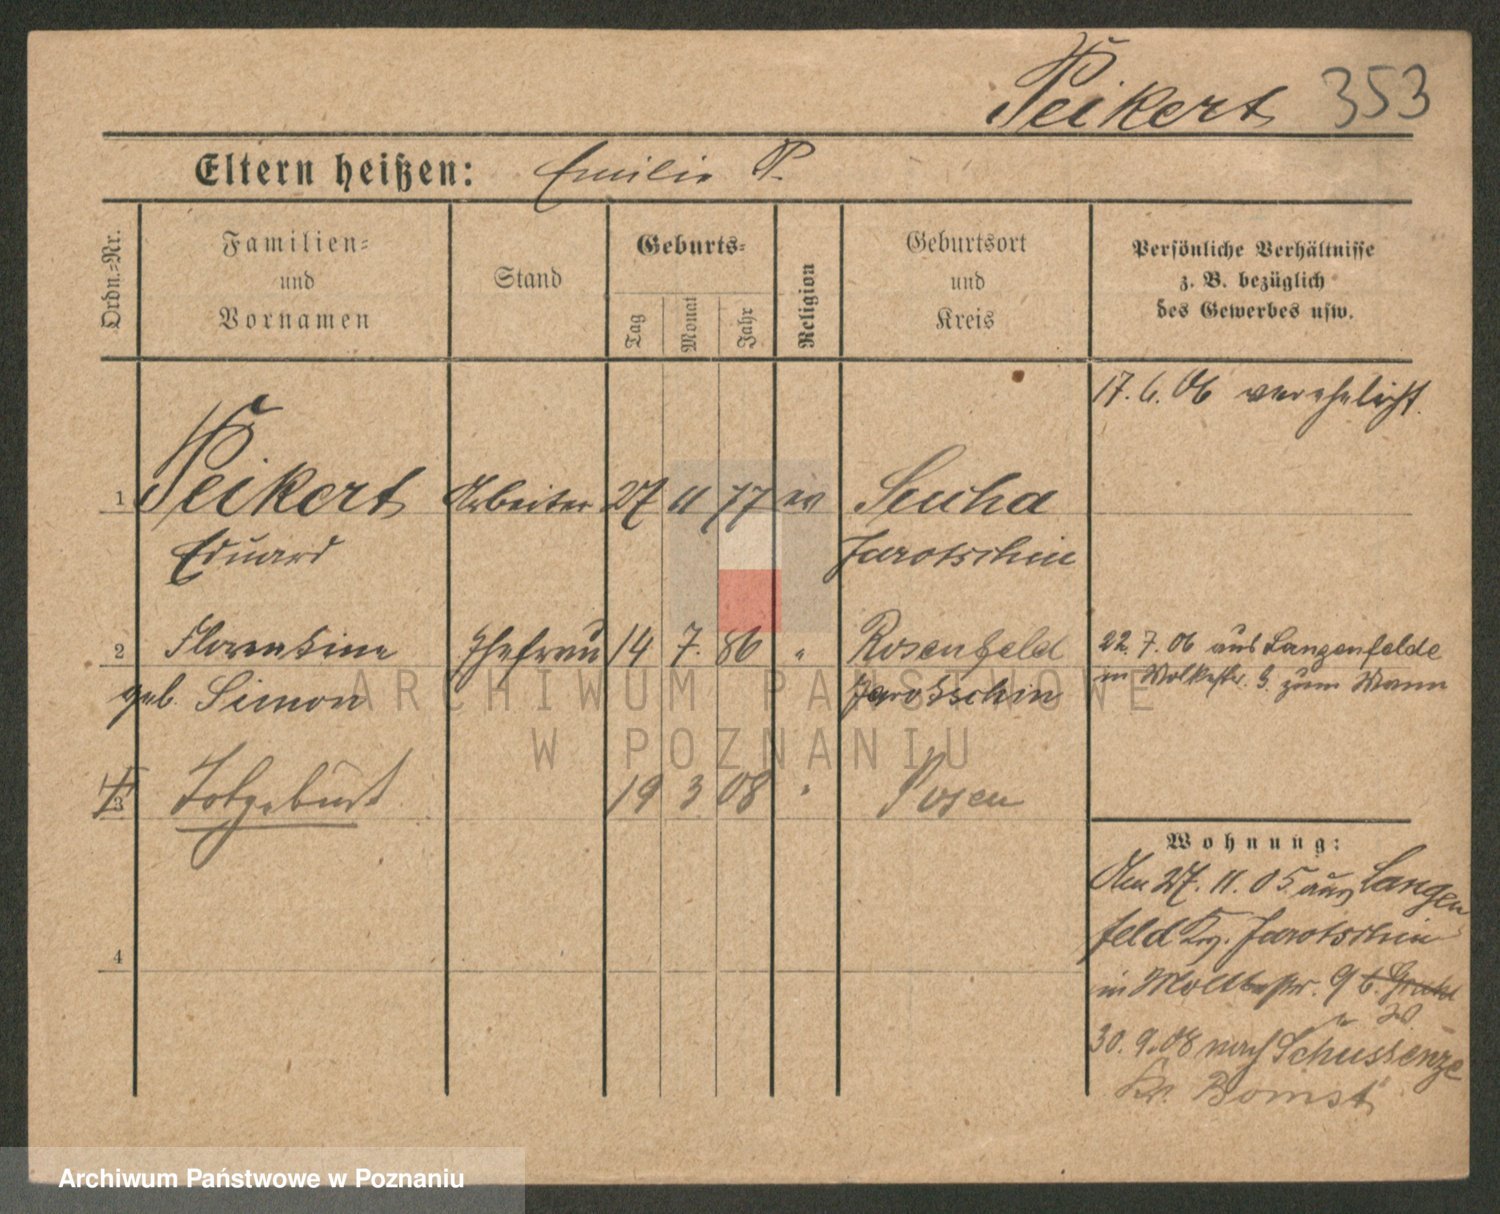 Peikert 353
Eltern heißen: Emilie P.
Ordn.=Nr.
Familien=
und
Vornamen
Stand
Geburts=
Tag
Monat
Jahr
Religion
Geburtsort
und
Kreis
Persönliche Verhältnisse
z. B. bezüglich
des Gewerbes usw.
17. 6. 06 verehelicht.
1 Peikert Arbeiter 27 11 77 ev Sucha
Eduard Jarotschin
2 Florentine Ehefrau 14 7. 86 " Rosenfeld
geb. Simon Jarotschin
22. 7. 06 aus Langenfelde
in zum Mann
3 Totgeburt 19 3 08 " Posen
4
Wohnung:
Am 27. 11. 05 aus Langen
feld Krs. Jarotschin
in Moltkestr. 9
30. 9. 08 nach Schussenze
Kr. Bomst
ARCHIWUM PAŃSTWOWE
W POZNANIU
Archiwum Państwowe w Poznaniu